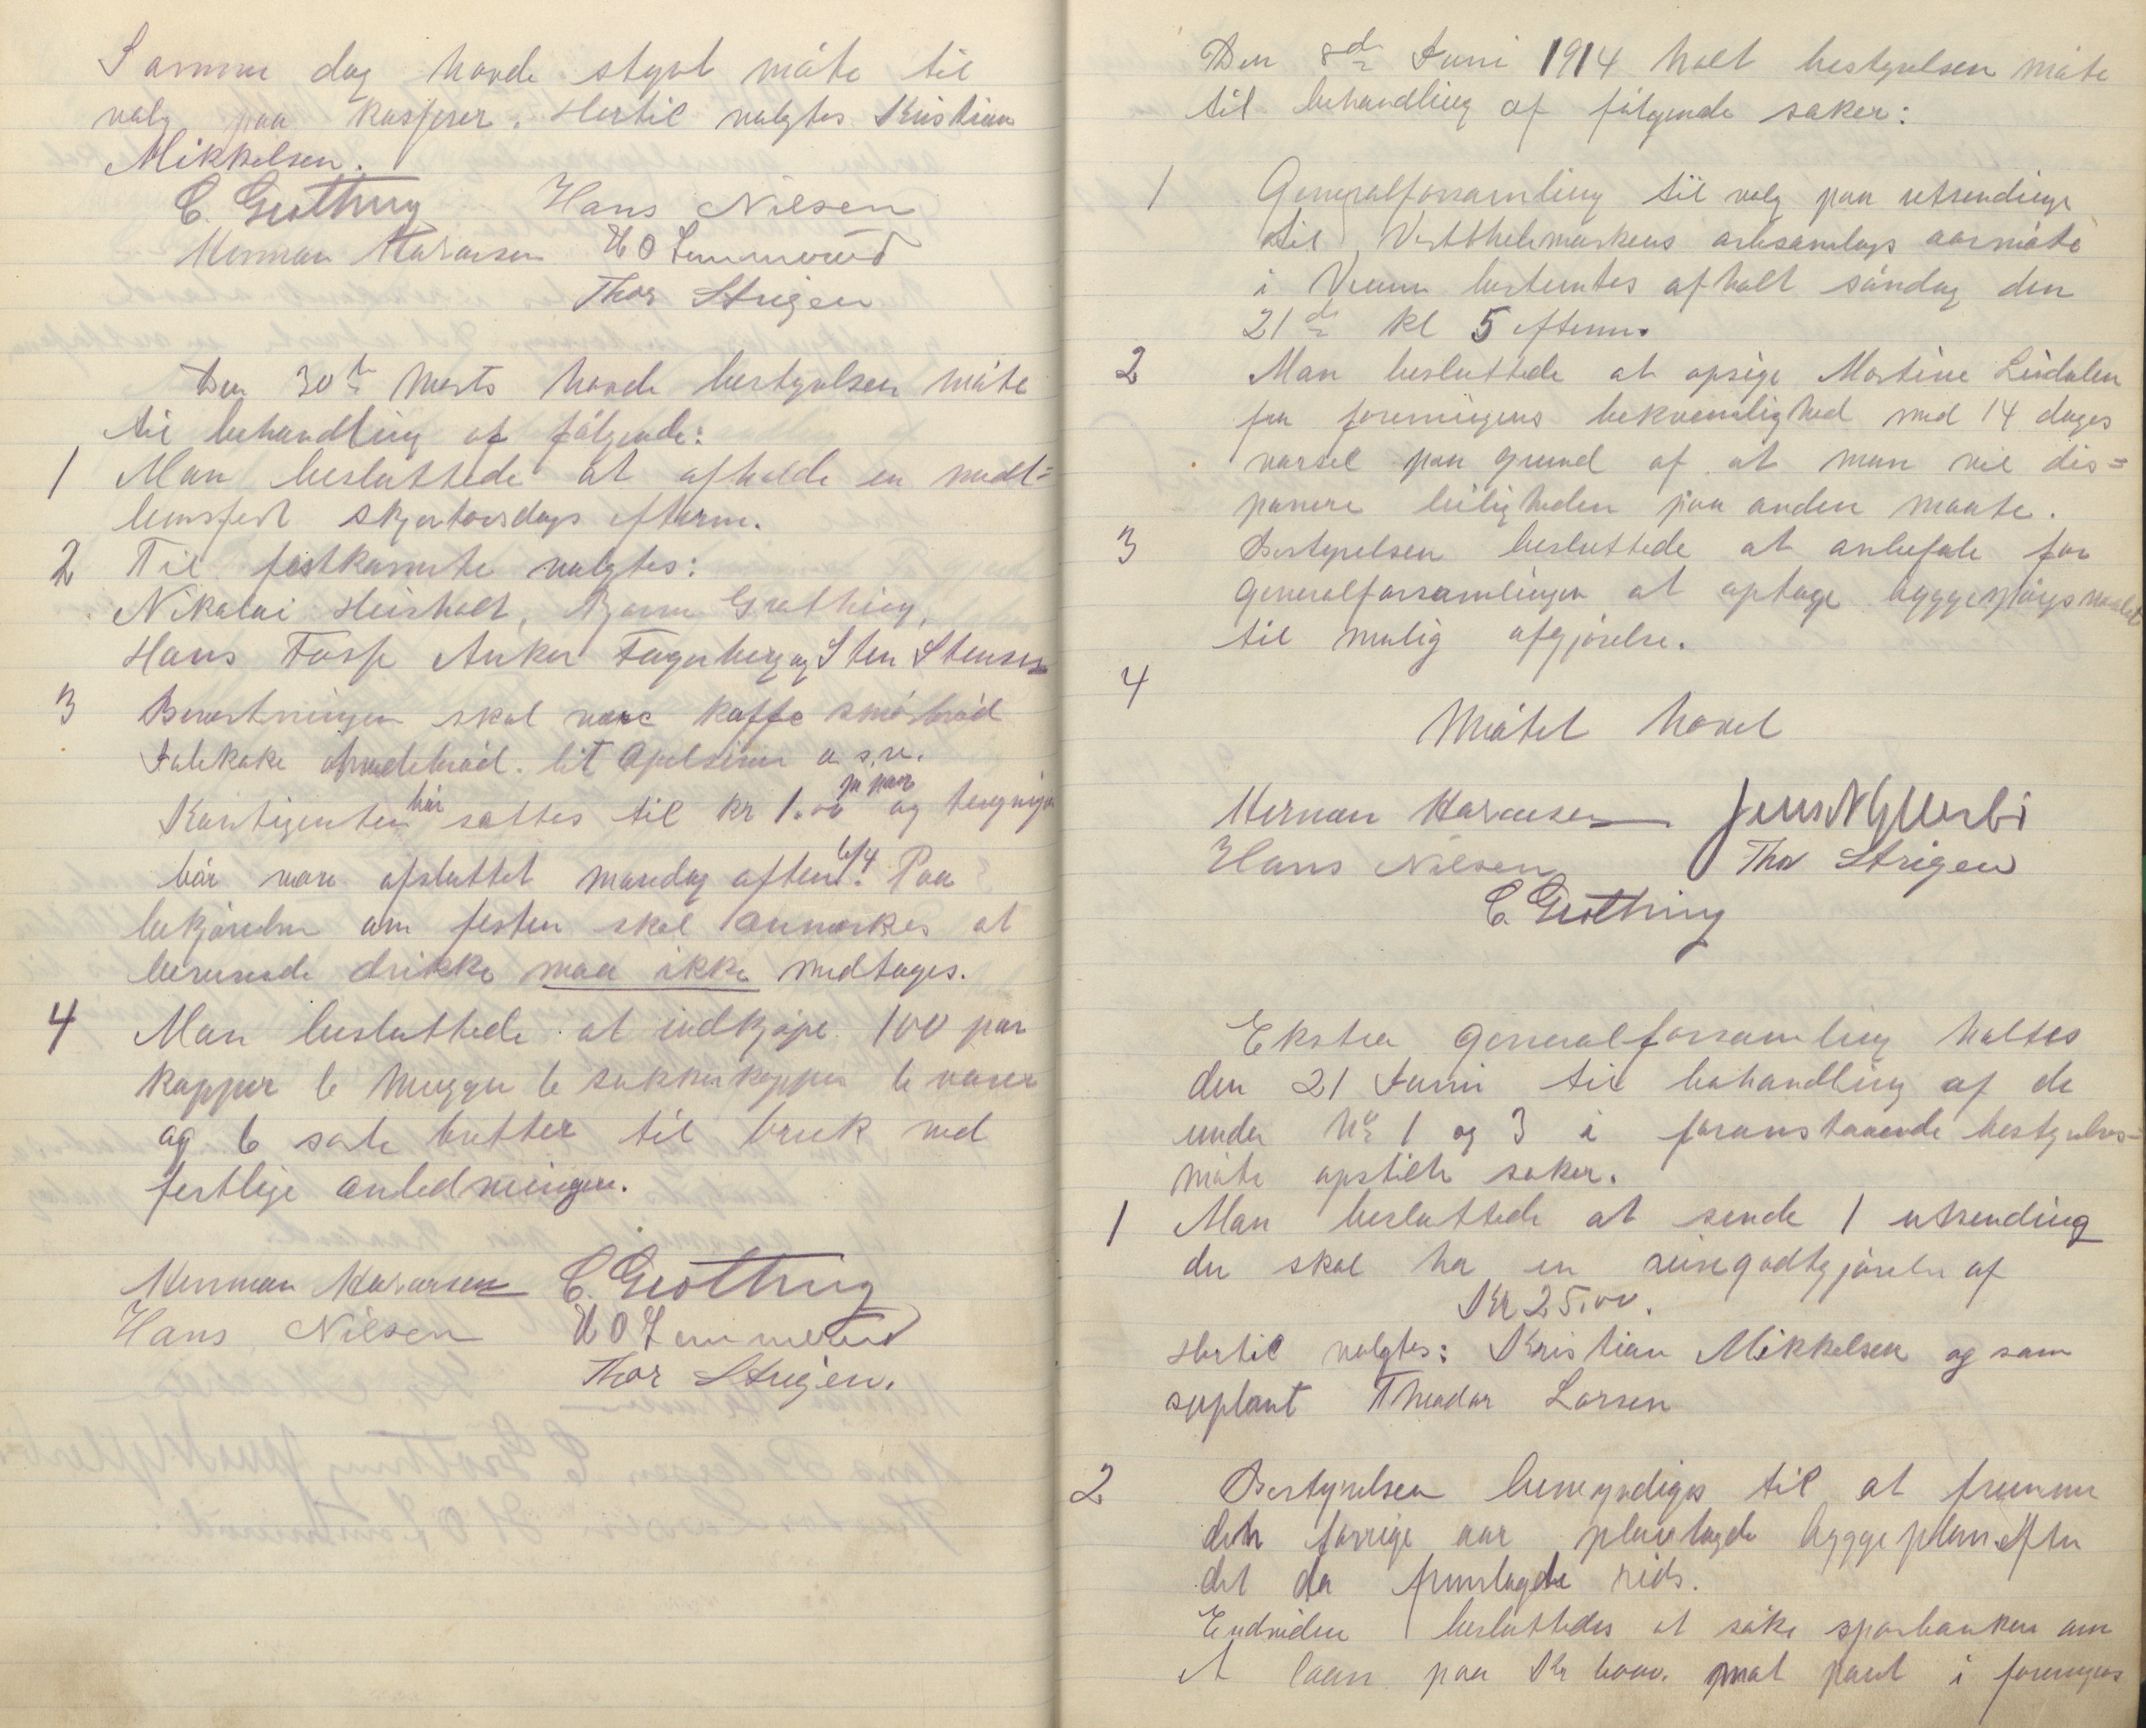 Samme dag havde styret møte til
valg paa kasserer. Hertil valgtes Kristian
Mikkelsen.
C. Grøtting Hans Nilsen
Herman H O Lemmerud
Thor Strigen
Den 30te Marts havde bestyrelsen møte
til behandling af følgende:
1 Man besluttede at afholde en medl=
lemsfest skjertorsdags efterm.
2 Til festkomite valgtes:
Nikolai Heisholt, Bjarne Grøtting,
Hans Foss Anker Fagerberg og Sten Stensen
3 Bevertningen skal være kaffe smørbrød
Julekake lit Apelsiner o. s. v.
Kontigenten bør sættes til kr 1.00 pr par og tegningen
bør være afsluttet mandag aften 6/4. Paa
bekjørelse om festen skal anmerkes at
berusende drikke maa ikke medtages.
4 Man besluttede at indkjøpe 100 par
kopper 6 mugger 6 sukkerkopper 6 vaser
og 6 sorte butter til bruk ved
festlige anledninger.
Herman C. Grøtting
Hans Nilsen H O Lemmerud
Thor Strigen.
Den 8de Juni 1914 holt bestyrelsen møte
til behandling af følgende saker:
1 Generalforsamling til valg paa utsendinge
til Vestthelemarkens arbsamlags aarsmøte
i Vraan bestemtes afholt søndag den
21de kl 5 efterm.
2 Man besluttede at opsige Martine Lindalen
fra foreningens bekvemlighed med 14 dages
varsel paa grund af at man vil dis=
panere leiligheden paa anden maate.
3 Bestyrelsen besluttede at anbefale for
generalforsamlingen at optage byggespørgsmaalet
til mulig afgjørelse.
4
Møtet hævet
Herman Jens N Gllerbi
Hans Nilsen Thor Strigen
C. Grøtting
Ekstra generalforsamling holtes
den 21 Juni til behandling af de
under No 1 og 3 i foranstaaende bestyrelses-
møte opstilte saker.
1 Man besluttede at sende 1 utsending
der skal ha en reisegodtgjørelse af
Kr 25.00.
Hertil valgtes: Kristian Mikkelsen og som
suplant Theodor Larsen
2 Bestyrelsen bemyndiges til at fremme
den forrige aar planlagde byggeplan efter
det da fremlagde rids.
Endvidere besluttedes at søke sparbanken om
et laan paa Kr 6000. mot pant i foreningens